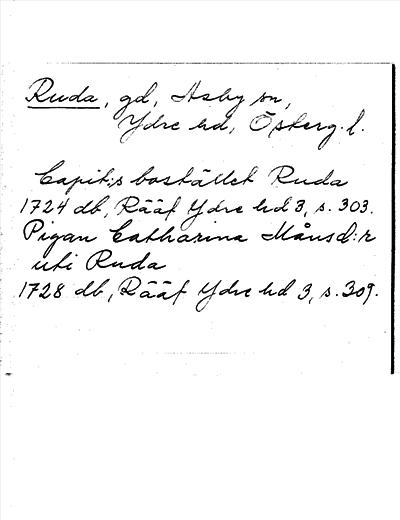 Ruda, gd, Asby sn,
Ydre hd, Österg.l.
Capit;s bostället Ruda
1724 db, Rääf Ydre hd 3, s. 303.
Pigan Catharina Månsd:r
uti Ruda
1728 db, Rääf Ydre hd 3, s. 309.